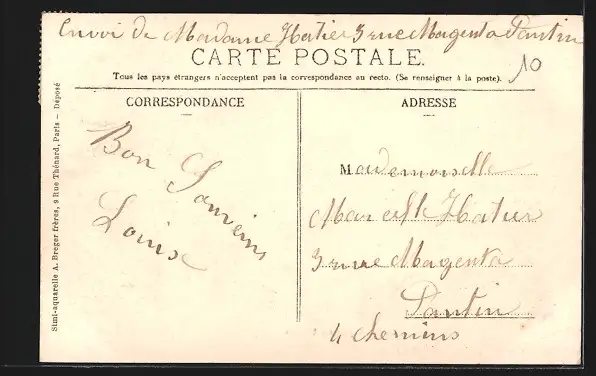 Envoi de Madame Hatier 3 rue Magenta Pantin
CARTE POSTALE.
10
Tous les pays étrangers n'acceptent pas la correspondance au recto. (Se renseigner à la poste).
CORRESPONDANCE
Bon Souvenir
Louise
ADRESSE
Mademoiselle
Marcelle Hatier
3 rue Magenta
Pantin
4 chemins
Simi-aquarelle A. Breger frères, 9 Rue Thénard, Paris – Déposé